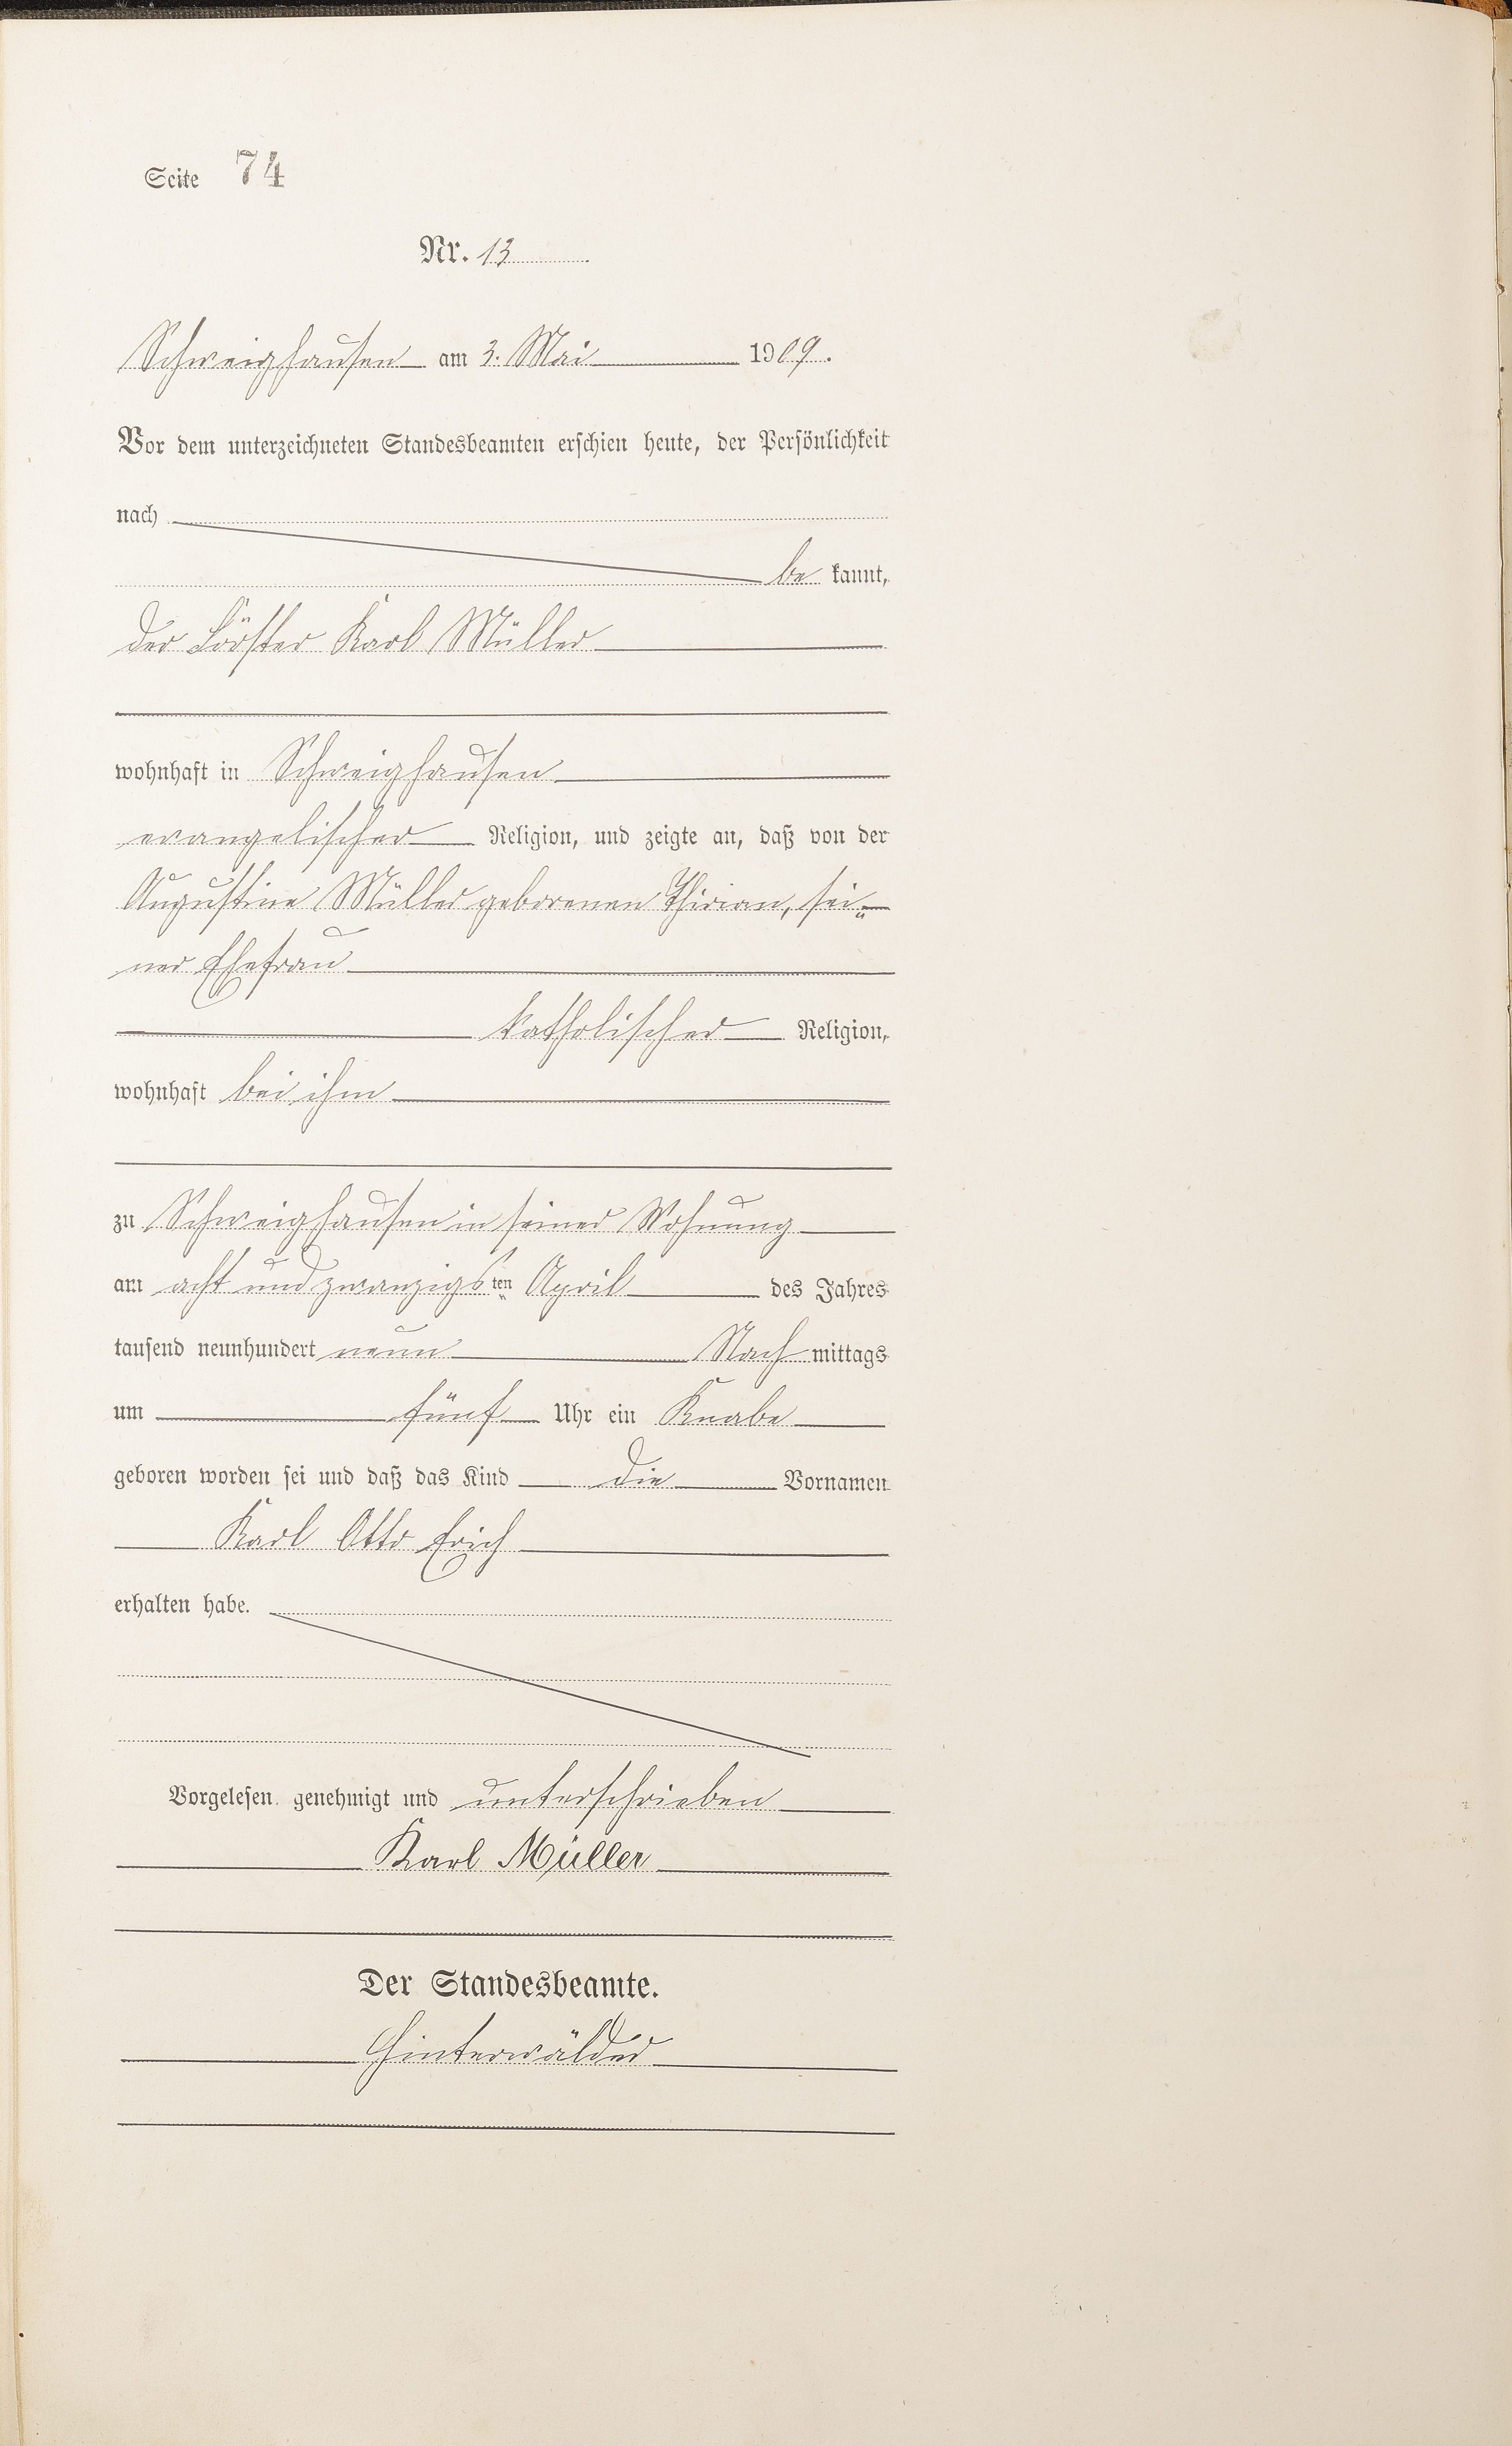 Seite 74
Nr. 13
Schweighausen am 3. Mai 1909.
Vor dem unterzeichneten Standesbeamten erschien heute, der Persönlichkeit
nach
be kannt,
der Förster Karl Müller
wohnhaft in Schweighausen
evangelischer Religion, und zeigte an, daß von der
Augustine Müller geborenen Thirion, sei-
ner Ehefrau
katholischer Religion,
wohnhaft bei ihm
zu Schweighausen in seiner Wohnung
am acht und zwanzigsten April des Jahres
tausend neunhundert neun Nach mittags
um fünf Uhr ein Knabe
geboren worden sei und daß das Kind die Vornamen
Karl Otto Erich
erhalten habe.
Vorgelesen, genehmigt und unterschrieben
Karl Müller
Der Standesbeamte.
Hinterwälder